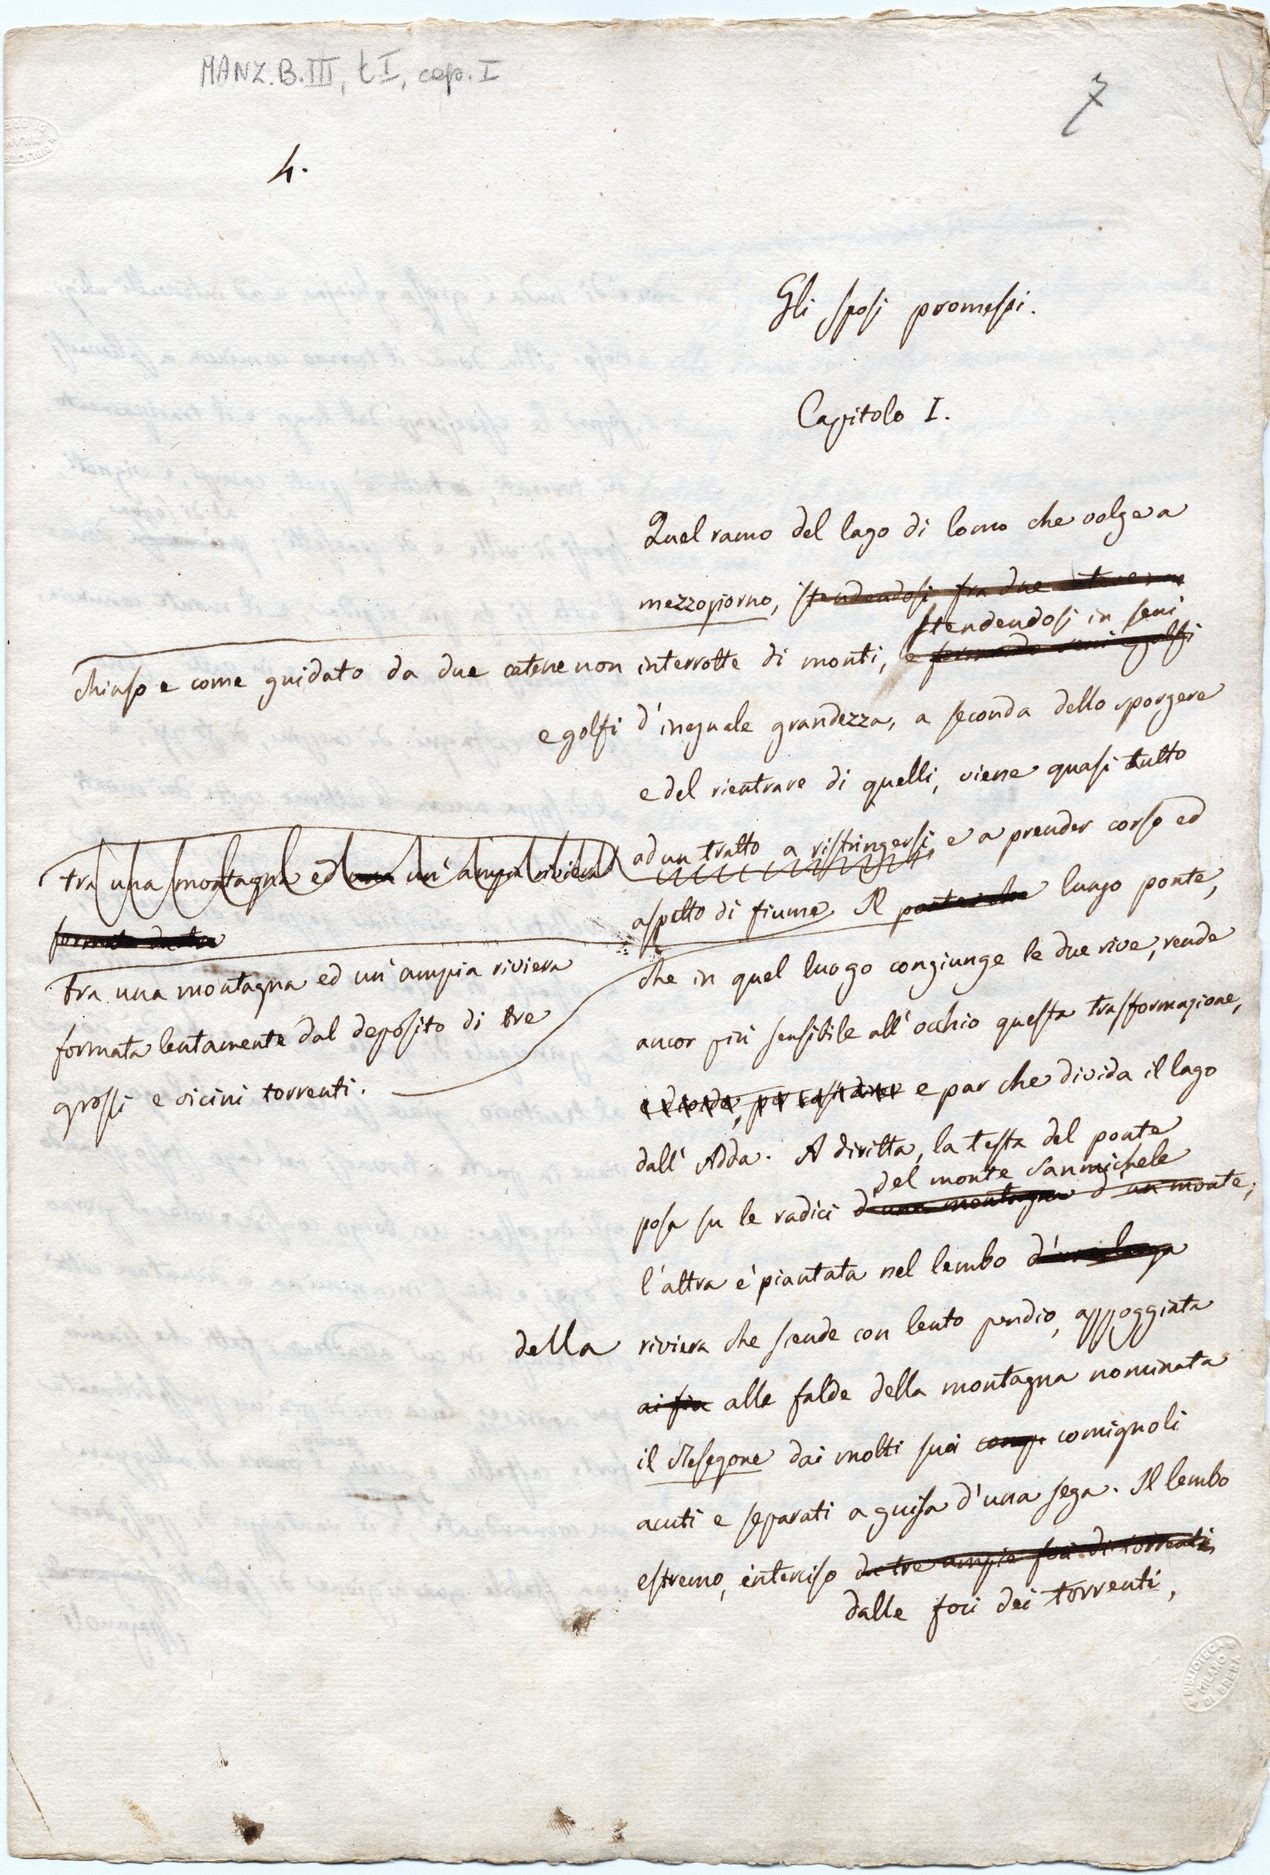 MANZ.B.III, t I, cap. I
7
4.
Gli sposi promessi.
Capitolo I.
Quel ramo del lago di Como che volge a
mezzogiorno, stendendosi fra due
stendendosi in seni
chiuso e come guidato da due catene non interrotte di monti, e formando seni e golfi
e golfi d'ineguale grandezza, a seconda dello sporgere
e del rientrare di quelli, viene quasi tutto
ad un tratto a ristringersi, e a prender corso ed
tra una montagna ed una un'ampia riviera
aspetto di fiume Il lungo ponte,
formata
che in quel luogo congiunge le due rive, rende
tra una montagna ed un'ampia riviera
ancor più sensibile all'occhio questa trasformazione,
formata lentamente dal deposito di tre
e par che divida il lago
grossi e vicini torrenti.
dall'Adda. A diritta, la testa del ponte
del monte Sanmichele
posa su le radici d'una montagna d'un monte,
l'altra è piantata nel lembo d'una larga
della riviera che scende con lento pendio, appoggiata
alle falde della montagna nominata
il Resegone dai molti suoi comignoli
acuti e separati a guisa d'una sega. Il lembo
estremo, interciso da tre ampie foci di torrenti,
dalle foci dei torrenti,
BIBLIOTECA
MILANO
DI BRERA